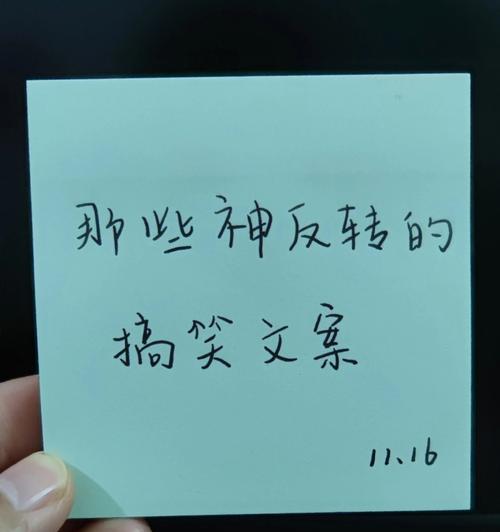 那些神反转的
搞笑文案
11.16